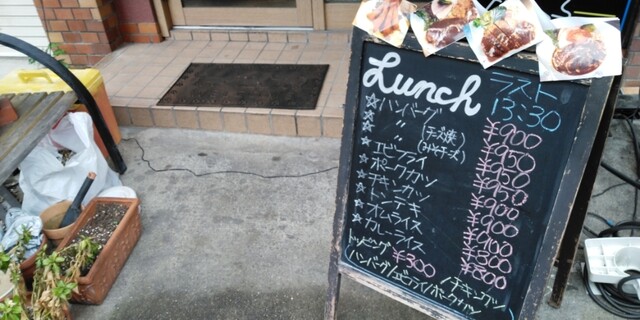 Lunch
ラスト
13:30
☆ハンバーグ ¥900
☆ 〃 (チーズ焼) ¥950
☆ 〃 (みそチーズ) ¥950
☆エビフライ ¥950
☆ポークカツ ¥900
☆チキンカツ ¥900
☆トンテキ
☆オムライス ¥900
☆カレーライス ¥800
トッピング ¥300
ハンバーグ/エビフライ/ポークカツ
/チキンカツ